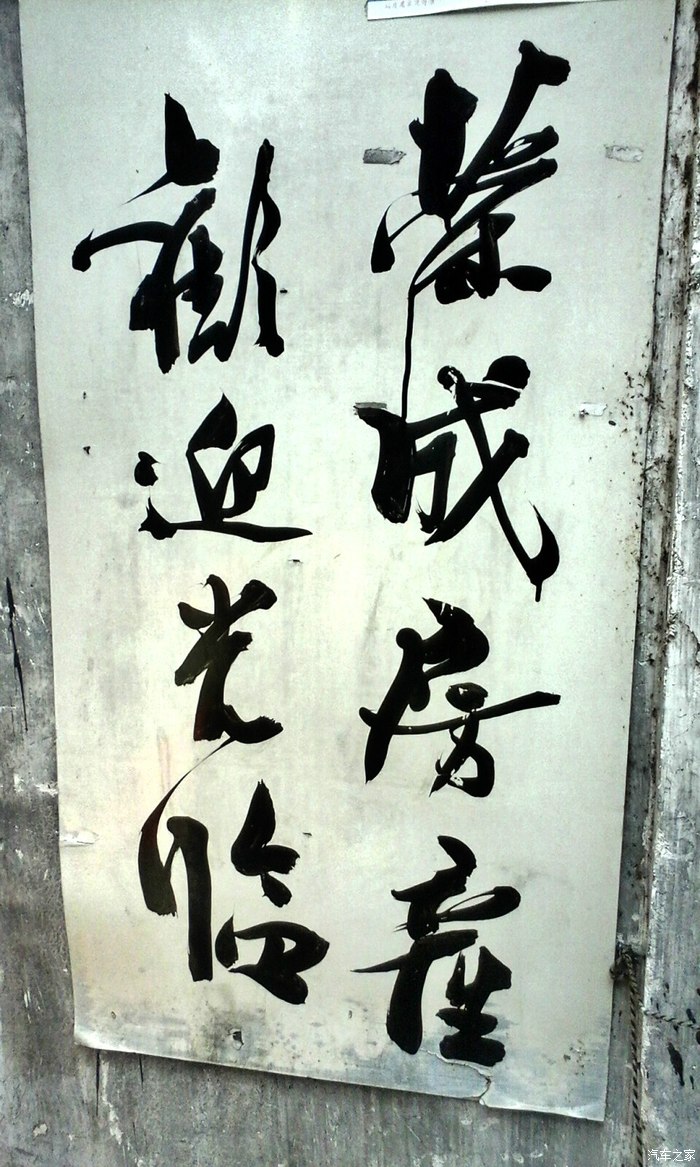 荣成房産
歡迎光临
汽车之家